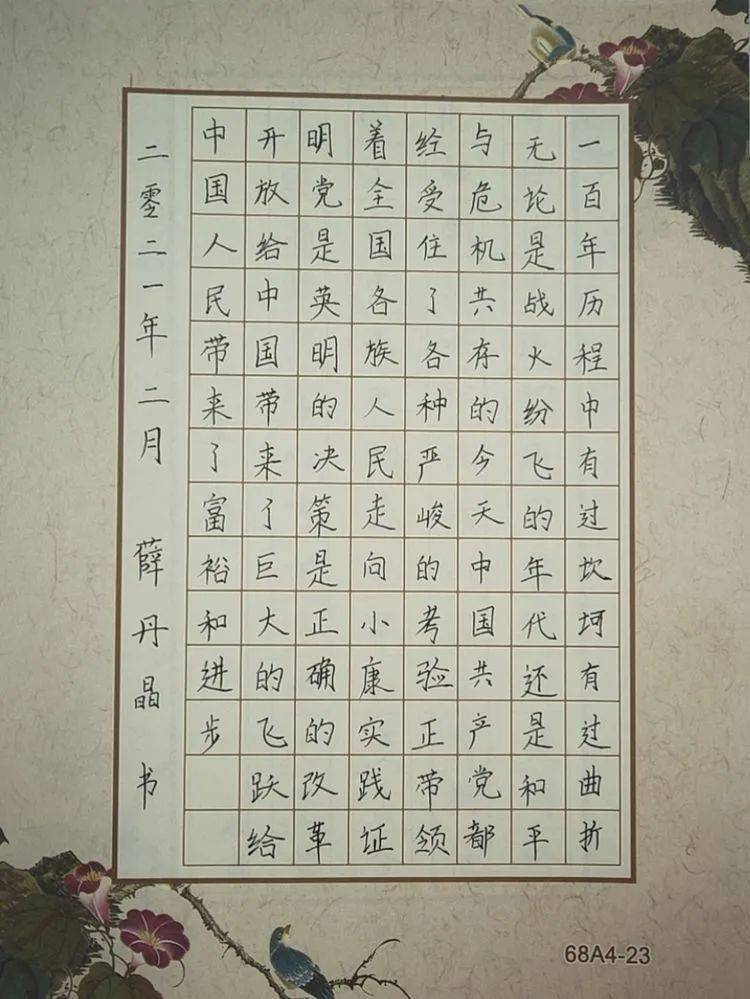 一百年历程中有过坎坷有过曲折
无论是战火纷飞的年代还是和平
与危机共存的今天中国共产党都
经受住了各种严峻的考验正带领
着全国各族人民走向小康实践证
明党是英明的决策是正确的改革
开放给中国带来了巨大的飞跃给
中国人民带来了富裕和进步
二零二一年二月 薛丹晶书
68A4-23